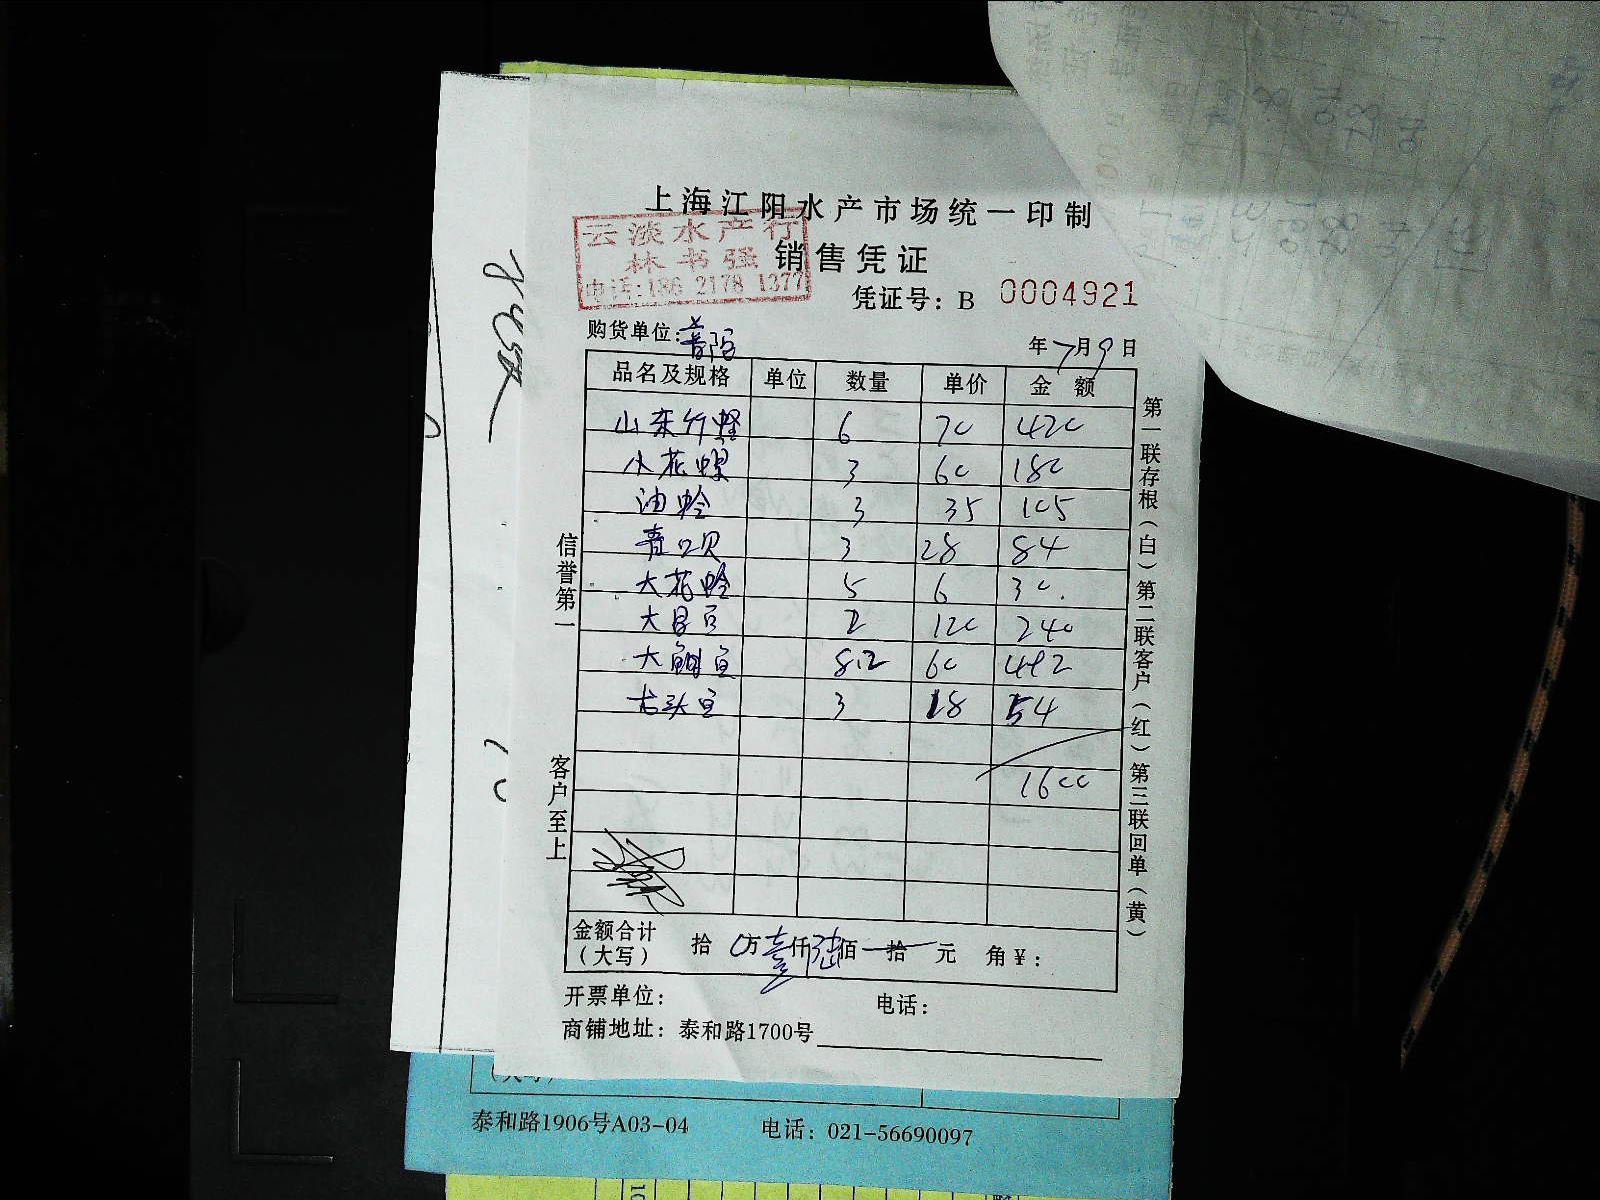 上海江阳水产市场统一印制
云淡水产行
林书强
电话:186 2178 1377
销售凭证
凭证号: B 0004921
购货单位: 普陀
年 7月 9日
品名及规格 单位 数量 单价 金额
山东竹蛏 6 70 420
小花螺 3 60 180
油蛤 3 35 105
青口贝 3 28 84
大花蛤 5 6 30.
大昌鱼 2 120 240
大鲷鱼 8.2 60 492
古头鱼 3 18 54
1600
金额合计
(大写) 拾 0万壹仟陆佰一拾 元 角¥:
开票单位: 电话:
商铺地址: 泰和路1700号
信誉第一
客户至上
第一联存根(白)第二联客户(红)第三联回单(黄)
(大写)
泰和路1906号A03-04 电话: 021-56690097